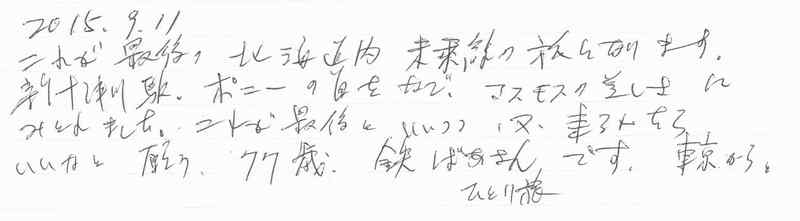 2015.9.11
これが最後の北海道内未乗線の旅と別ます。
新十津川駅。ポニーの首をなで、コスモスの美しさに
みとれました。これが最後といいつつ又、来るかもう
いいなと願う、77歳。鉄ばあさんです。東京から。
ひとり旅